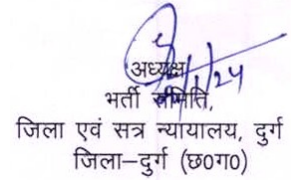 अध्यक्ष
भर्ती समिति,
जिला एवं सत्र न्यायालय, दुर्ग
जिला–दुर्ग (छ0ग0)